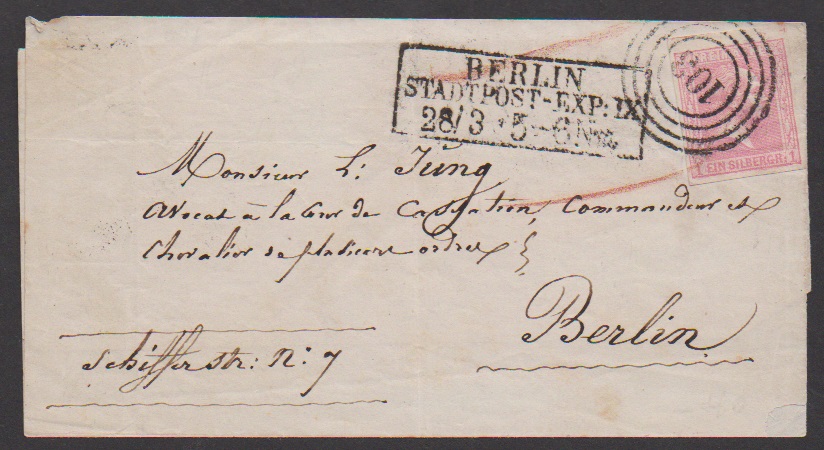 BERLIN
STADTPOST-EXP: IX
28/3 5-6 Nm
103
1 EIN SILBERGR. 1
Monsieur L: Jung
Avocat à la Cour de Cassation, Commandeur et
Chevalier de plusieurs ordres
Berlin
Schiffer str: N: 7